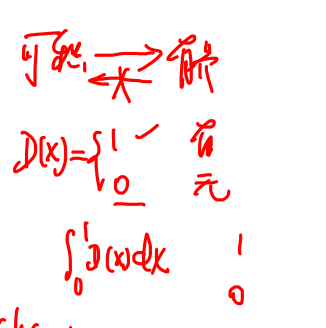 可积 ⇄ 有界
D(x)={1 ✓ 有
0 无
∫₀¹ D(x)dx 1
0